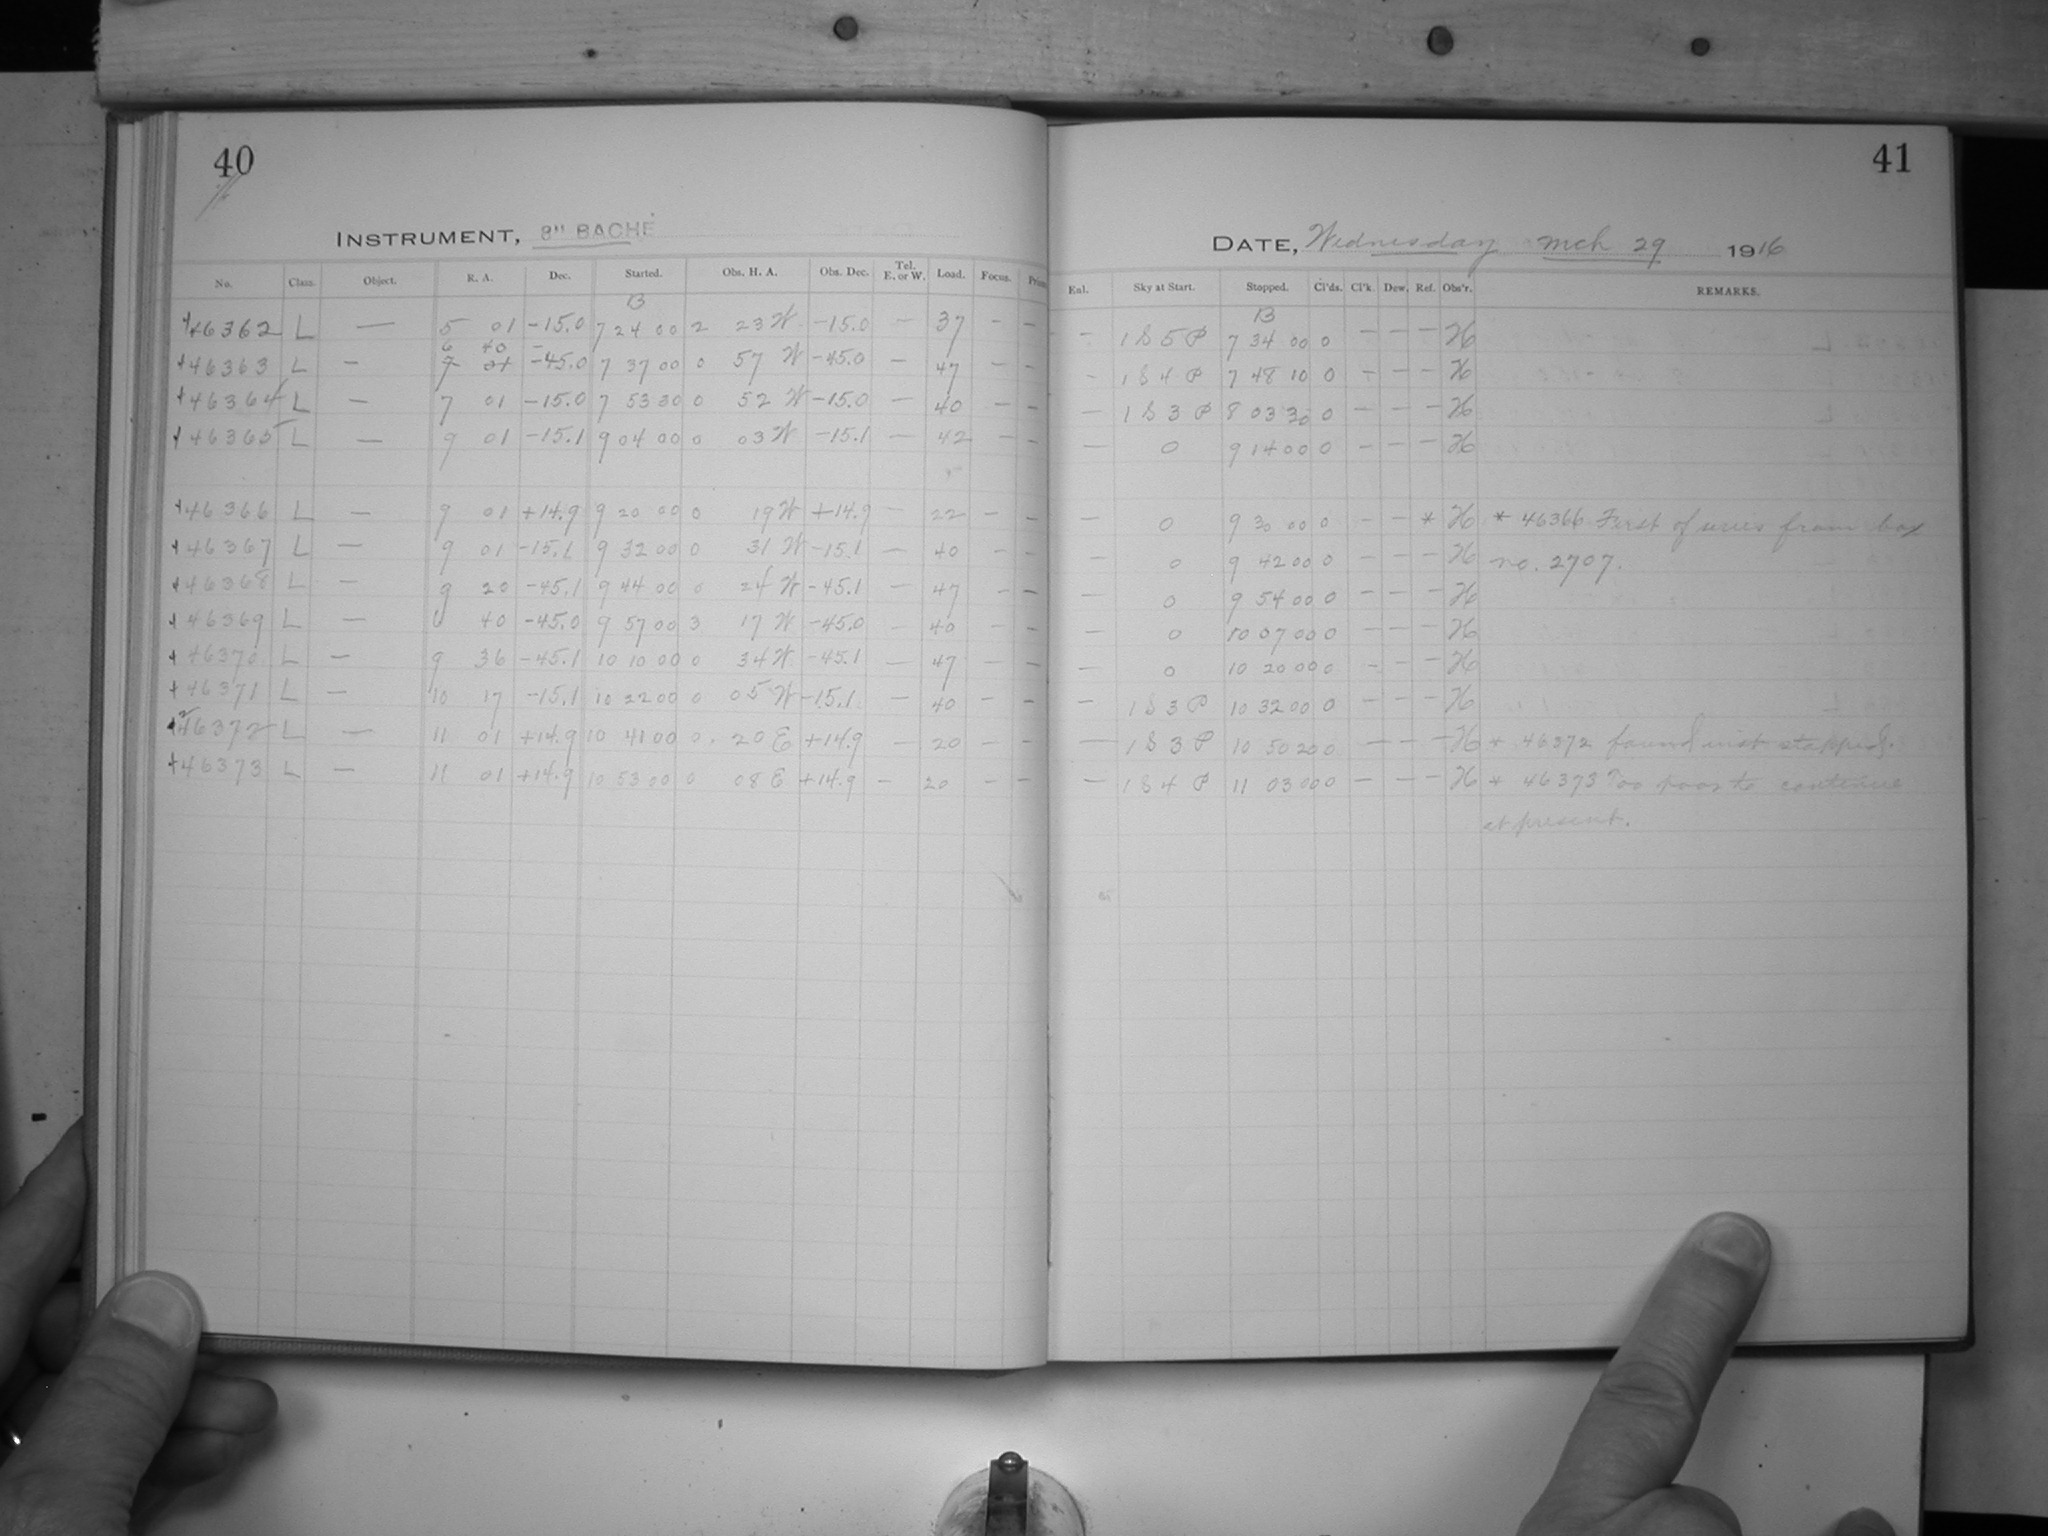 40
INSTRUMENT, 8" BACHE
No. Class. Object. R. A. Dec. Started. Obs. H. A. Obs. Dec. Tel. E. or W. Load. Focus.
B
46362 L — 5 01 -15.0 7 24 00 2 23 W -15.0 — 37 — —
6 40 —
46363 L — 7 01 -45.0 7 37 00 0 57 W -45.0 — 47 — —
46364 L — 7 01 -15.0 7 53 30 0 52 W -15.0 — 40 — —
46365 L — 9 01 -15.1 9 04 00 0 03 W -15.1 — 42 — —
46366 L — 9 01 +14.9 9 20 00 0 19 W +14.9 — 22 — —
46367 L — 9 01 -15.1 9 32 00 0 31 W -15.1 — 40 — —
46368 L — 9 20 -45.1 9 44 00 0 24 W -45.1 — 47 — —
46369 L — 6 40 -45.0 9 57 00 3 17 W -45.0 — 40 — —
46370 L — 9 36 -45.1 10 10 00 0 34 W -45.1 — 47 — —
46371 L — 10 17 -15.1 10 22 00 0 05 W -15.1 — 40 — —
46372 L — 11 01 +14.9 10 41 00 0 20 E +14.9 — 20 — —
46373 L — 11 01 +14.9 10 53 00 0 08 E +14.9 — 20 — —
41
DATE, Wednesday Mch 29 1916
Enl. Sky at Start. Stopped. Cl'ds. Cl'k. Dew. Ref. Obs'r. REMARKS.
B
— 1 S 5 P 7 34 00 0 — — — H
— 1 S 4 P 7 48 10 0 — — — H
— 1 S 3 P 8 03 30 0 — — — H
— 0 9 14 00 0 — — — H
— 0 9 30 00 0 — — * H * 46366 First of series from box
— 0 9 42 00 0 — — — H no. 2707.
— 0 9 54 00 0 — — — H
— 0 10 07 00 0 — — — H
— 0 10 20 00 0 — — — H
— 1 S 3 P 10 32 00 0 — — — H
— 1 S 3 P 10 50 20 0 — — — H * 46372 found inst stopped.
— 1 S 4 P 11 03 00 0 — — — H * 46373 Too poor to continue
at present.